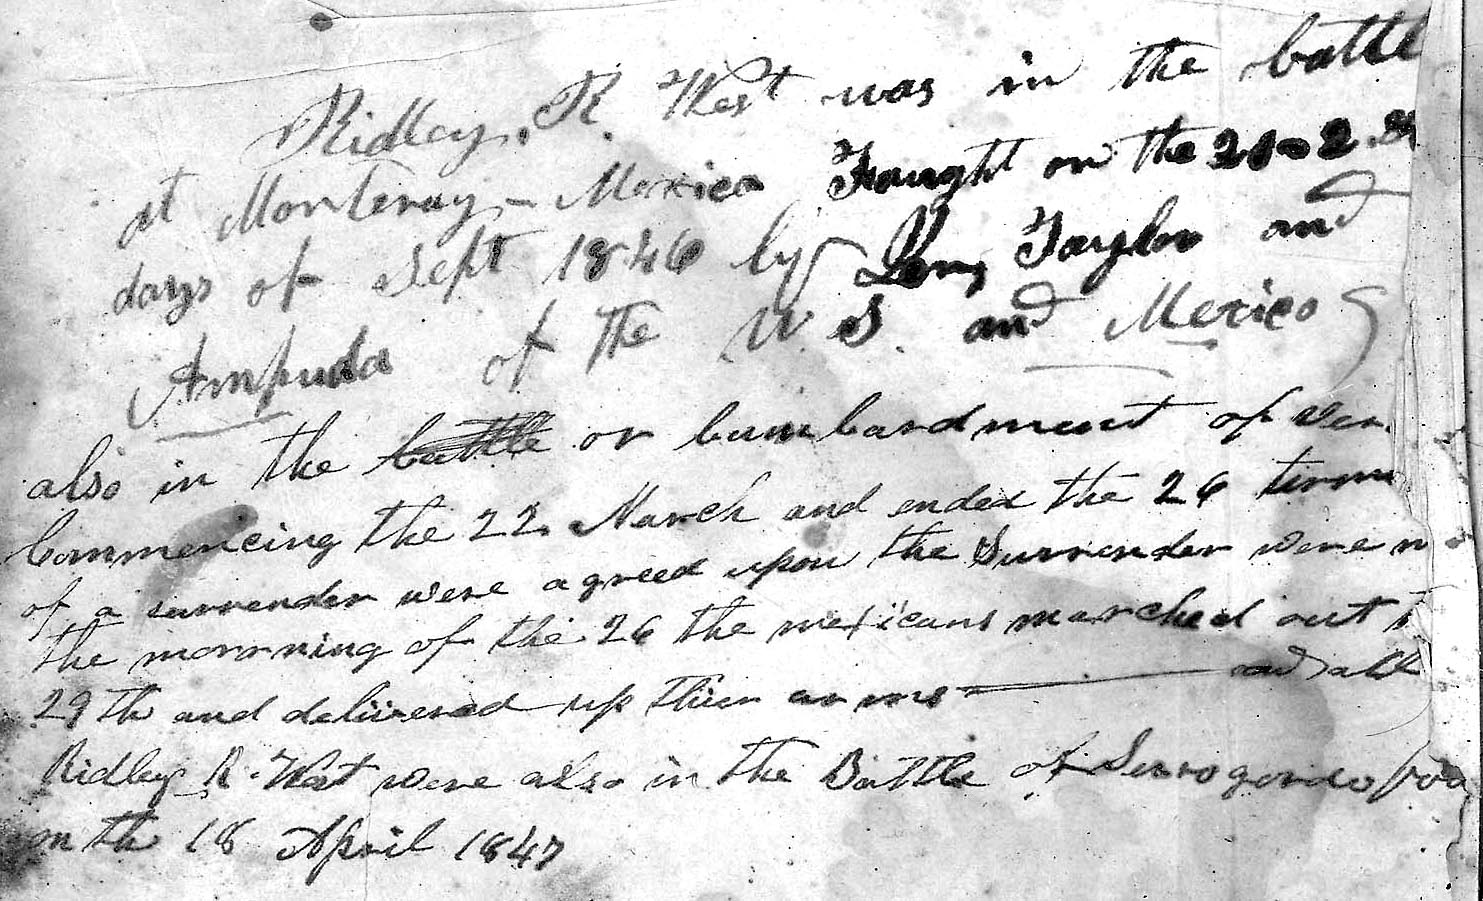 Ridley. R. West was in the battl
at Monteray - Mexico Faught on the 21-2
days of Sept 1846 by Genl Taylor and
Ampuda of the U. S. and Mexico
also in the battle or bumbardment of Ver.
Commencing the 22 March and ended the 26 tirms
of a surrender were agreed upon the Surrender were
the morrning of the 26 the mexicans marched out
29th and delivered up their arms
Ridley R. West were also in the Battle of Serrogordo
on the 18 April 1847